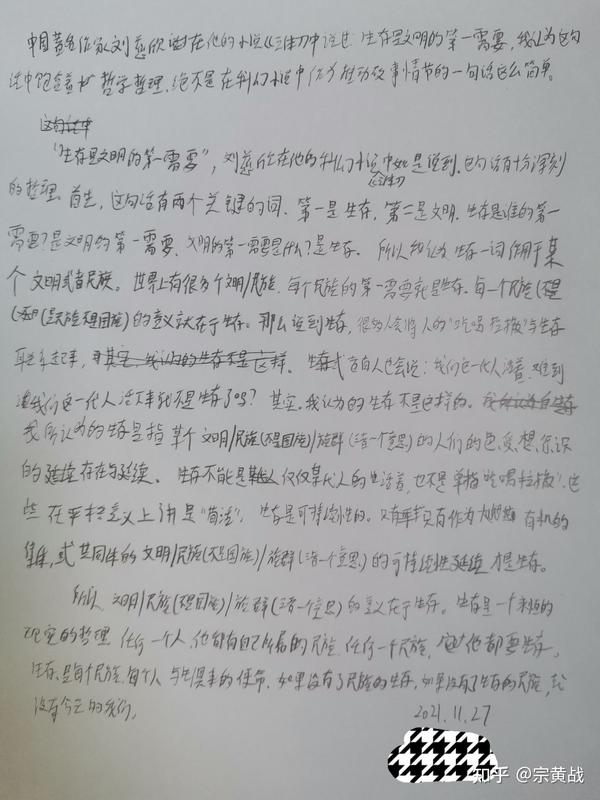 中国著名作家刘慈欣在他的小说《三体》中说过：生存是文明的第一需要，我认为这句
话中饱含着 哲学哲理，绝不是在科幻小说中仅为推动故事情节的一句话这么简单。
这句话中
“生存是文明的第一需要”，刘慈欣在他的科幻小说中如是说到，这句话有十分深刻
《三体》
的哲理。首先，这句话有两个关键的词，第一是生存，第二是文明。生存是谁的第一
需要？是文明的第一需要，文明的第一需要是什么？是生存。所以我认为，生存一词作用于某
个文明或者民族。世界上有很多个文明/民族，每个民族的第一需要就是生存。每一个民族（不是
（是民族不是国族）的意义就在于生存。那么说到生存，很多人会将人的“吃喝拉撒”与生存
联系起来，其实，我认为的生存不是这样。生存 有人也会说：我们这一代人活着，难到
我们这一代人活下来就不是生存了吗？其实，我认为的生存不是这样的。我所认为的生存
我所认为的生存是指某个文明/民族（不是国族）/族群（三者一个意思）的人们的色、受、想、行、识
的延续存在与延续。生存不能是 仅仅某代人的生活着，也不是单指“吃喝拉撒”，这
些在严格意义上讲是“苟活”。生存是可持续性的。只有 作为 有机的
集体，或共同体的文明/民族（不是国族）/族群（三者一个意思）的可持续性延续才是生存。
所以，文明/民族（不是国族）/族群（三者一个意思）的意义在于生存。生存是一个永恒的
现实的哲理，任何一个人，他都有自己所属的民族，任何一个民族，它 都要生存。
生存，是每个民族，每个人与生俱来的使命。如果没有了民族的生存，如果没有了生存的民族，
没有今天的我们。
2021.11.27
知乎 @宗黄战